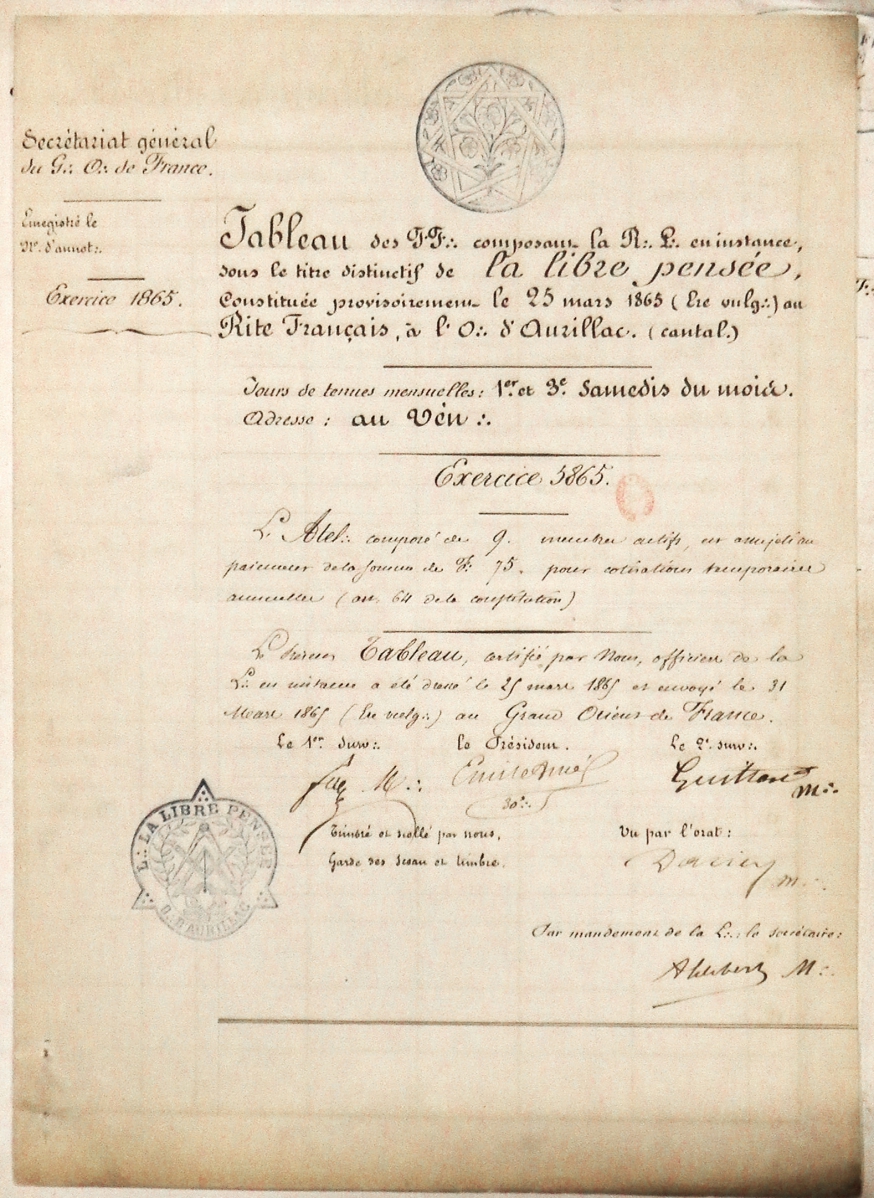 Secrétariat général
du G∴ O∴ de France.
Enregistré le
N.º d'annot∴
Exercice 1865.
Tableau des F.F∴ composant la R∴ L∴ en instance,
sous le titre distinctif de la libre pensée,
Constituée provisoirement le 25 mars 1865 (Ere vulg∴) au
Rite Français, à l'O∴ d'Aurillac. (cantal.)
Jours de tenues mensuelles : 1er et 3e Samedis du mois.
Adresse : au Vén∴
Exercice 5865.
L'Atel∴ composé de 9. membres actifs, est assujeti au
paiement de la somme de F. 75. pour cotisations temporaires
annuelles (art. 64 de la constitution)
Le présent Tableau, certifié par Nous, officiers de la
L∴ en instance a été dressé le 25 mars 1865 et envoyé le 31
Mars 1865 (Ere vulg∴) au Grand Orient de France.
Le 1er Surv∴ le Président. Le 2e surv∴
M∴ Emile 30e∴ M∴
Timbré et scellé par nous, Vu par l'orat :
Garde des Sceau et timbre. M∴
L∴ LA LIBRE PENSÉE
O∴ D'AURILLAC
Par mandement de la L∴ le secrétaire :
M∴